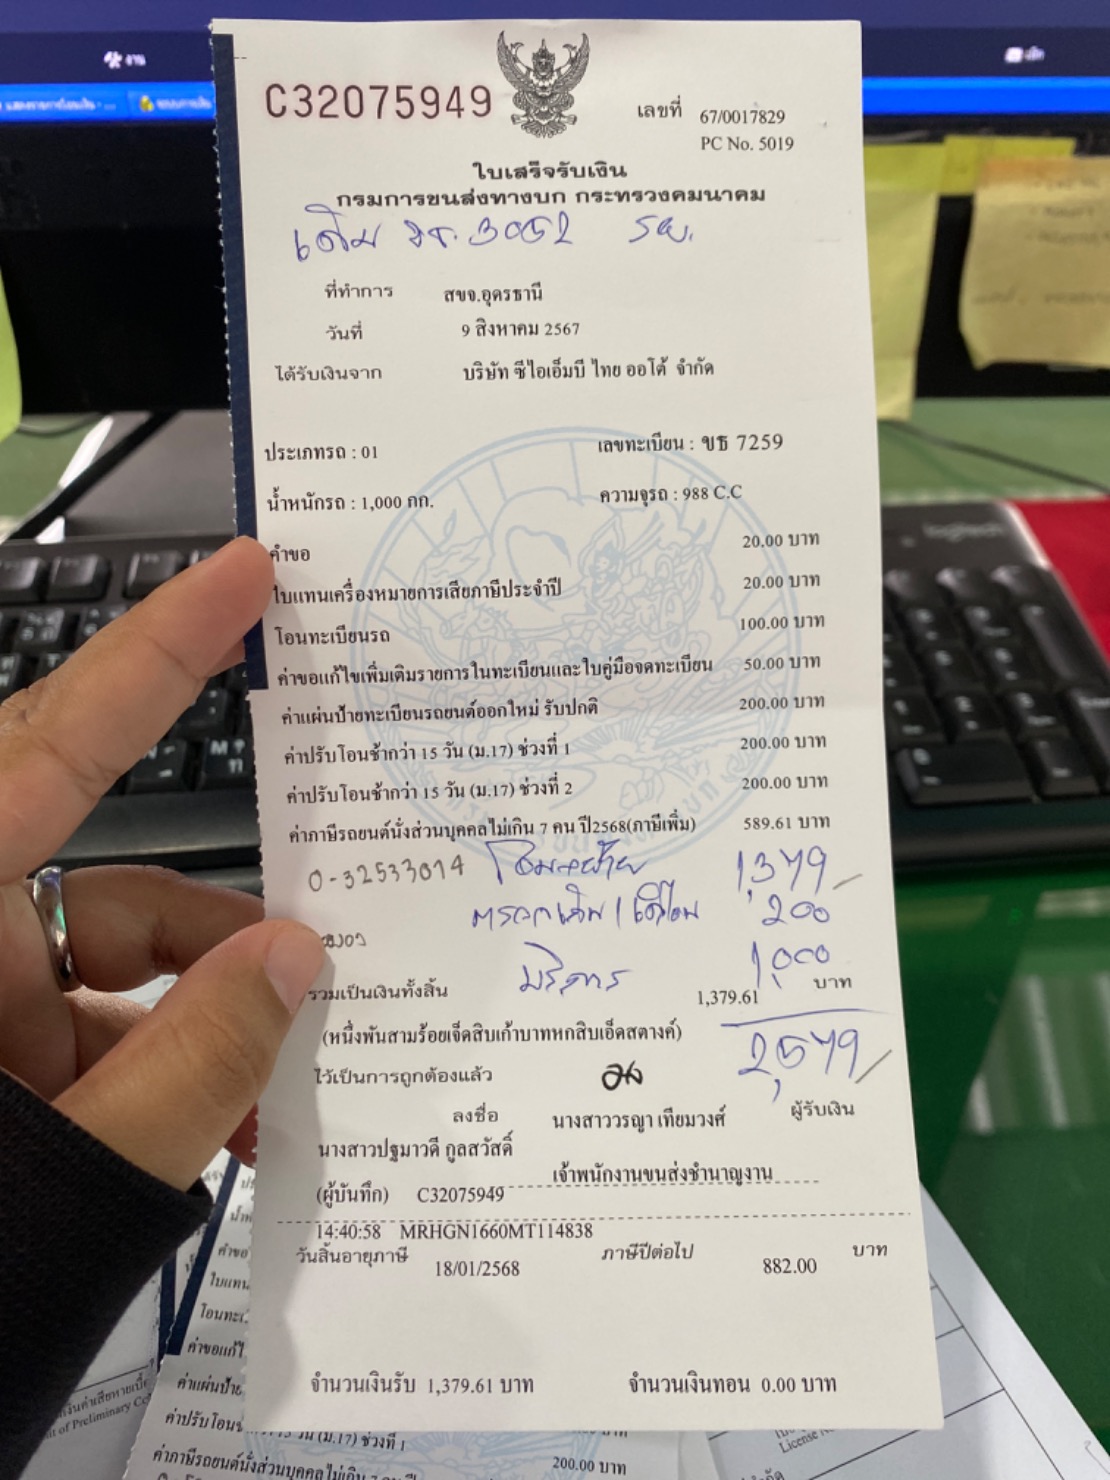 งาน
C32075949
เลขที่ 67/0017829
PC No. 5019
ใบเสร็จรับเงิน
กรมการขนส่งทางบก กระทรวงคมนาคม
เดิม ขร.3052 รย.
ที่ทำการ สขจ.อุดรธานี
วันที่ 9 สิงหาคม 2567
ได้รับเงินจาก บริษัท ซีไอเอ็มบี ไทย ออโต้ จำกัด
ประเภทรถ : 01 เลขทะเบียน : ขธ 7259
น้ำหนักรถ : 1,000 กก. ความจุรถ : 988 C.C
คำขอ 20.00 บาท
ใบแทนเครื่องหมายการเสียภาษีประจำปี 20.00 บาท
โอนทะเบียนรถ 100.00 บาท
ค่าขอแก้ไขเพิ่มเติมรายการในทะเบียนและใบคู่มือจดทะเบียน 50.00 บาท
ค่าแผ่นป้ายทะเบียนรถยนต์ออกใหม่ รับปกติ 200.00 บาท
ค่าปรับโอนช้ากว่า 15 วัน (ม.17) ช่วงที่ 1 200.00 บาท
ค่าปรับโอนช้ากว่า 15 วัน (ม.17) ช่วงที่ 2 200.00 บาท
ค่าภาษีรถยนต์นั่งส่วนบุคคลไม่เกิน 7 คน ปี2568(ภาษีเพิ่ม) 589.61 บาท
0-32533014 1,379
200
บริการ 1,000
รวมเป็นเงินทั้งสิ้น 1,379.61 บาท
(หนึ่งพันสามร้อยเจ็ดสิบเก้าบาทหกสิบเอ็ดสตางค์) 2,579
ไว้เป็นการถูกต้องแล้ว
ลงชื่อ นางสาววรญา เทียมวงศ์ ผู้รับเงิน
นางสาวปฐมาวดี กูลสวัสดิ์
เจ้าพนักงานขนส่งชำนาญงาน
(ผู้บันทึก) C32075949
14:40:58 MRHGN1660MT114838
วันสิ้นอายุภาษี 18/01/2568 ภาษีปีต่อไป 882.00 บาท
จำนวนเงินรับ 1,379.61 บาท จำนวนเงินทอน 0.00 บาท
logitech
คำขอ
ใบแทน
โอนทะเ
ค่าขอแก้ไ
ค่าแผ่นป้าย
ค่าปรับโอน
(ม.17) ช่วงที่ 1
200.00 บาท
ค่าภาษีรถยนต์นั่งส่วนบุคคลไม่เกิน 7 คน
of Preliminary
License